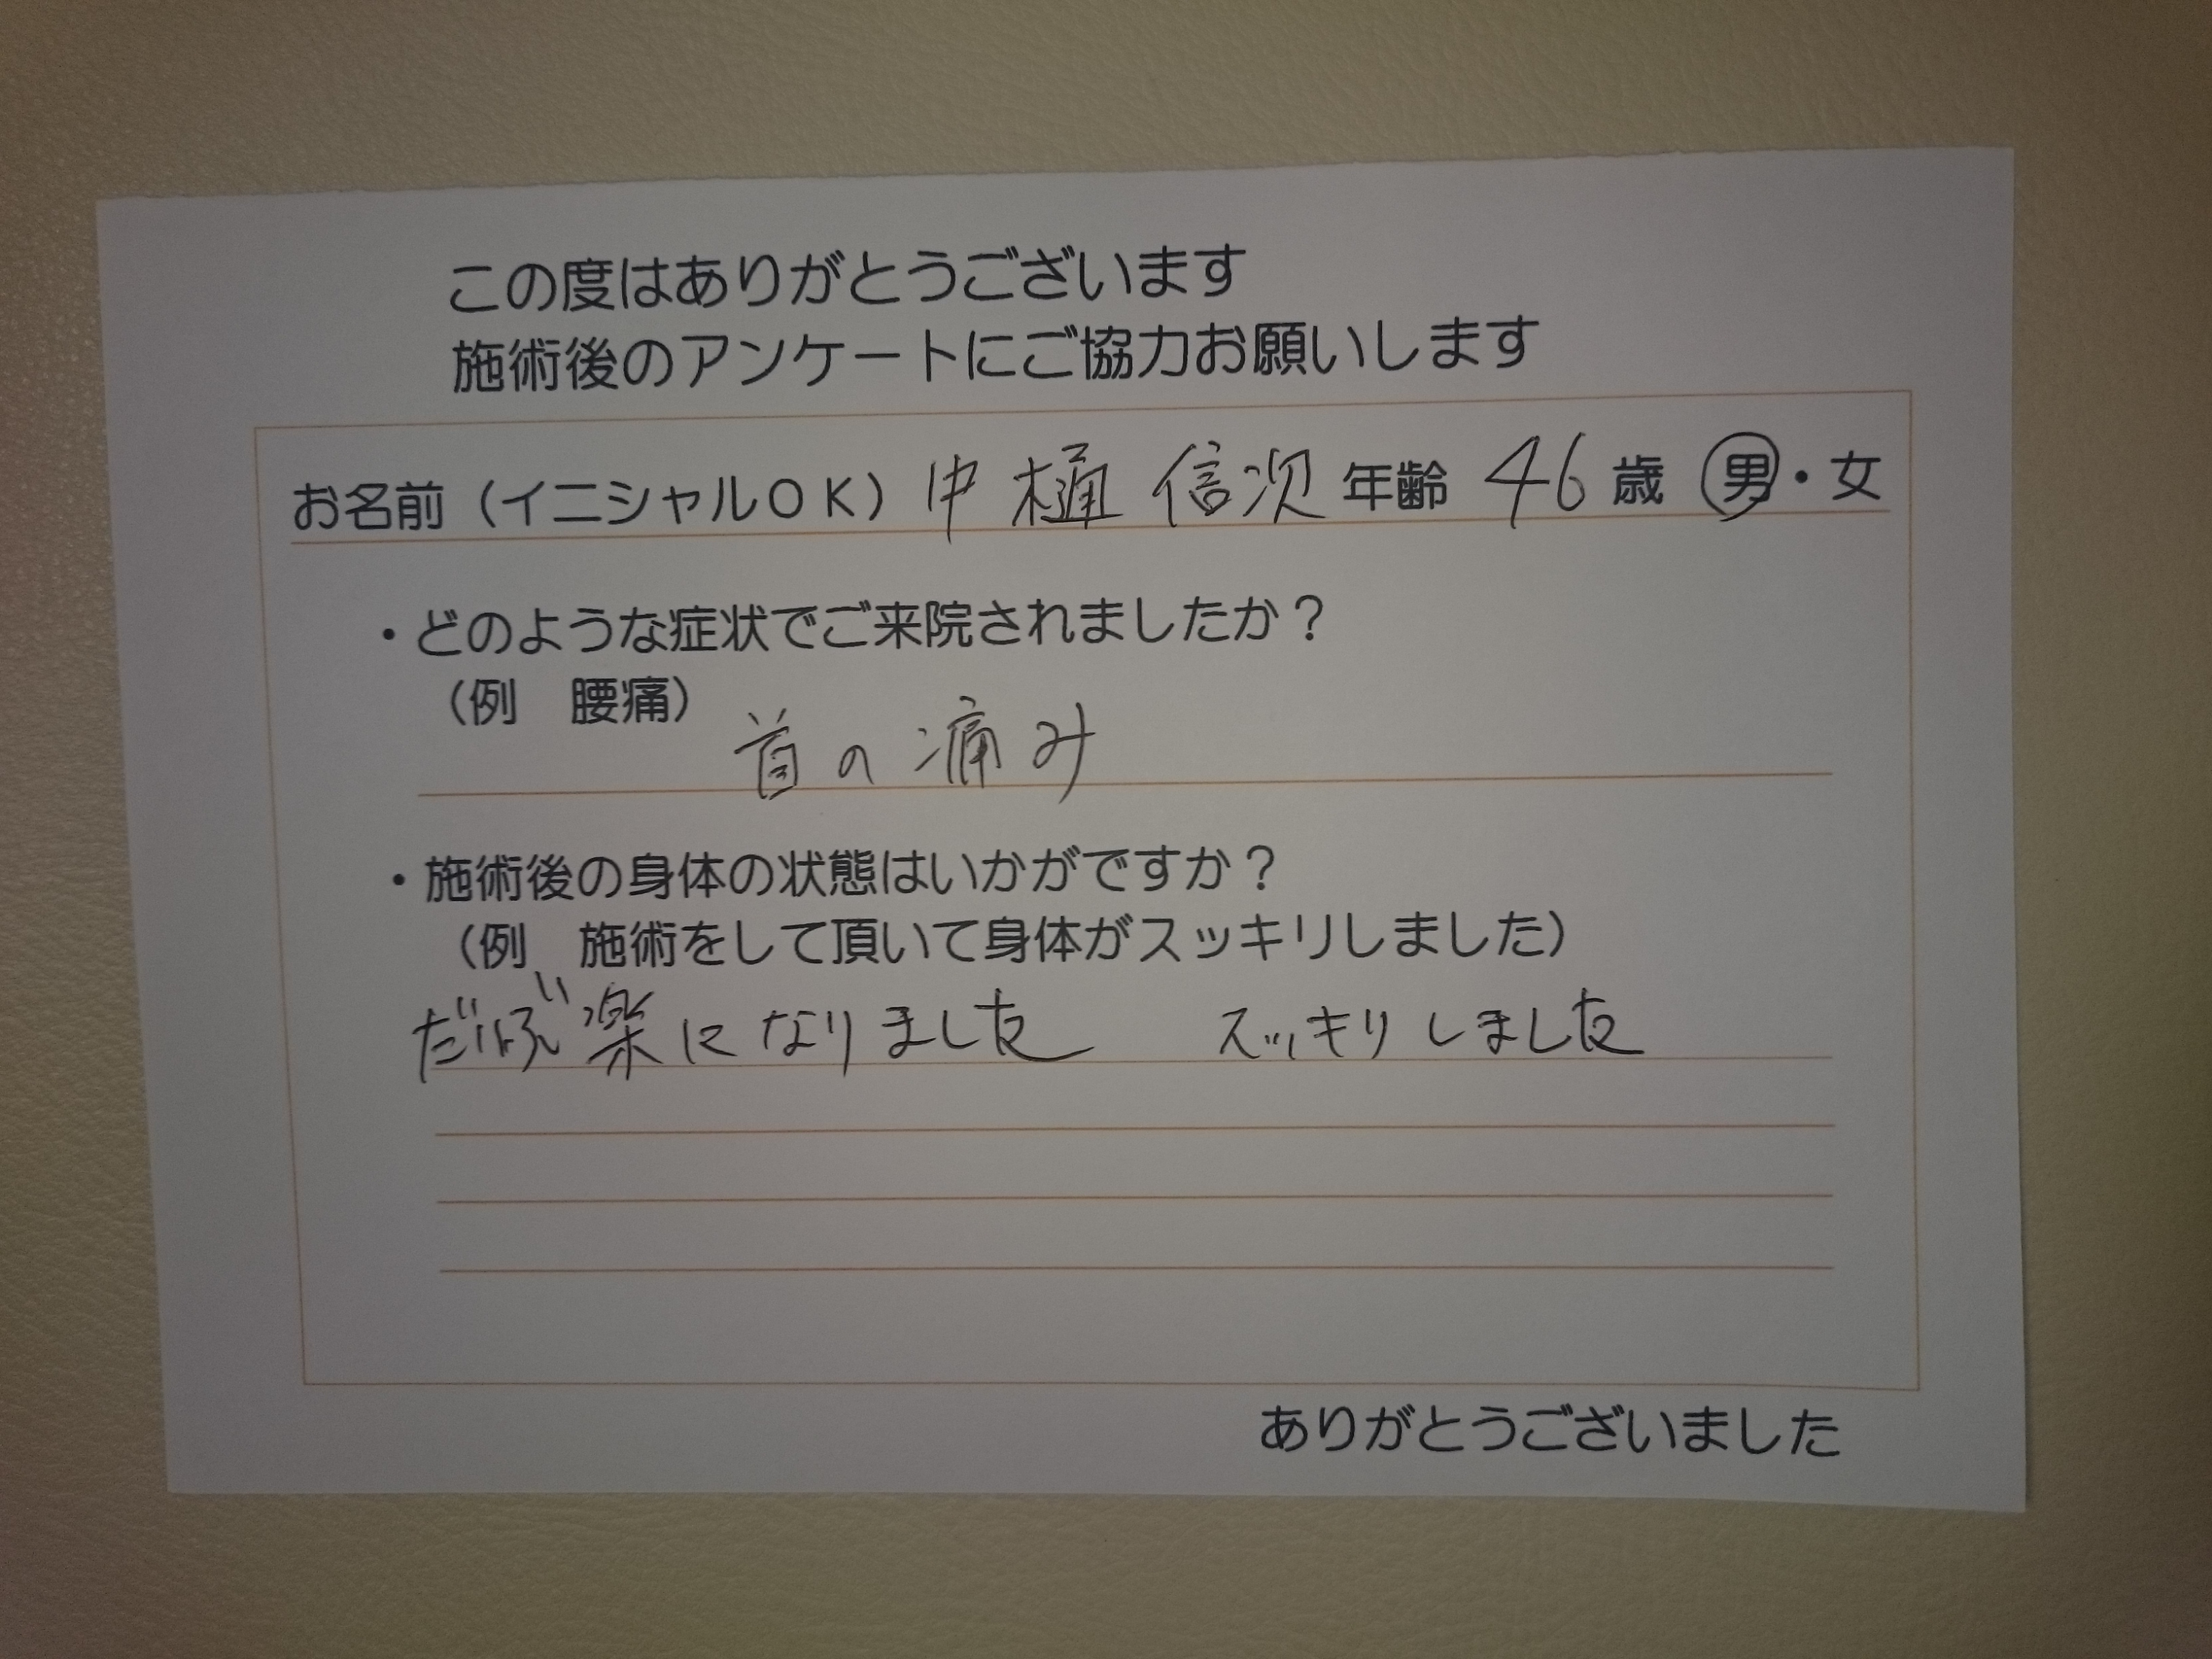 この度はありがとうございます
施術後のアンケートにご協力お願いします
お名前（イニシャルＯＫ）中樋 信次 年齢 46 歳 男・女
・どのような症状でご来院されましたか？
（例　腰痛）
首の痛み
・施術後の身体の状態はいかがですか？
（例　施術をして頂いて身体がスッキリしました）
だいぶ楽になりました　スッキリしました
ありがとうございました